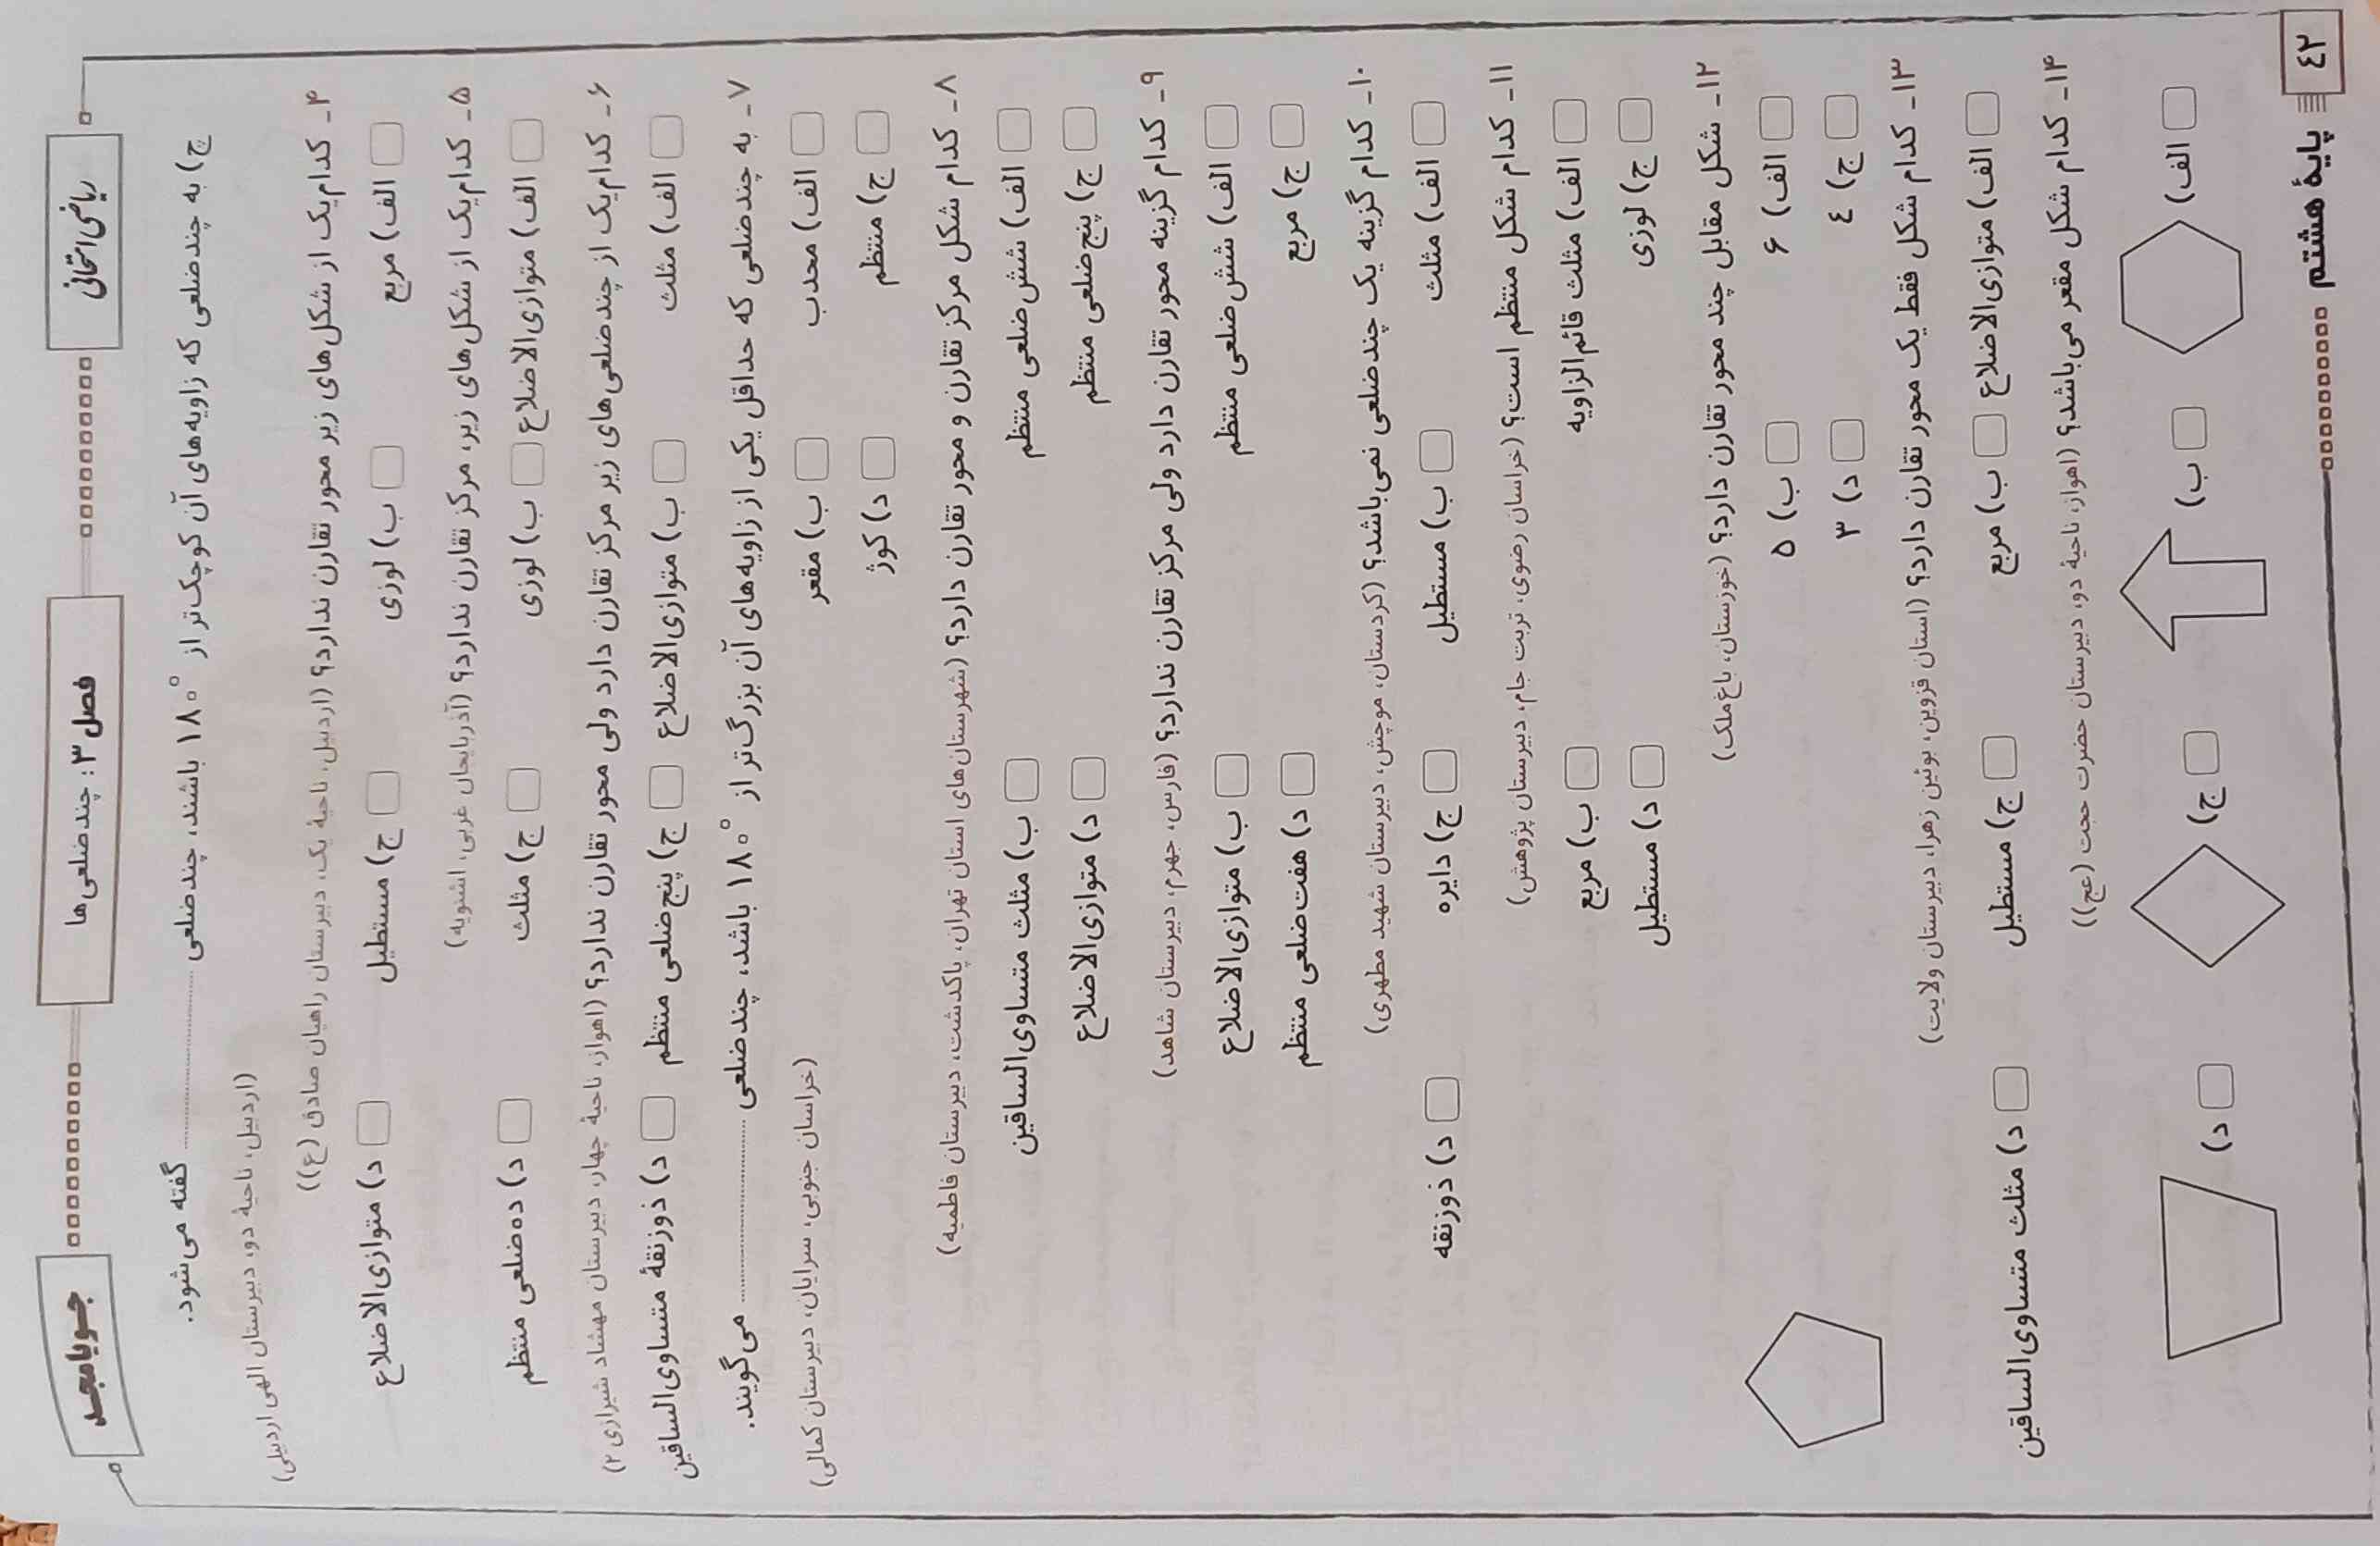 ریاضی امتحانی
فصل ۳: چندضلعی‌ها
جویامجد
ج) به چندضلعی که زاویه‌های آن کوچک‌تر از ۱۸۰° باشند، چندضلعی .................... گفته می‌شود.
(اردبیل، ناحیهٔ دو، دبیرستان الهی اردبیلی)
۴ـ کدام‌یک از شکل‌های زیر محور تقارن ندارد؟ (اردبیل، ناحیهٔ یک، دبیرستان راهیان صادق (ع))
الف) مربع ب) لوزی ج) مستطیل د) متوازی‌الاضلاع
۵ـ کدام‌یک از شکل‌های زیر، مرکز تقارن ندارد؟ (آذربایجان غربی، اشنویه)
الف) متوازی‌الاضلاع ب) لوزی ج) مثلث د) ده‌ضلعی منتظم
۶ـ کدام‌یک از چندضلعی‌های زیر مرکز تقارن دارد ولی محور تقارن ندارد؟ (اهواز، ناحیهٔ چهار، دبیرستان مهشاد شیرازی ۲)
الف) مثلث ب) متوازی‌الاضلاع ج) پنج‌ضلعی منتظم د) ذوزنقهٔ متساوی‌الساقین
۷ـ به چندضلعی که حداقل یکی از زاویه‌های آن بزرگ‌تر از ۱۸۰° باشد، چندضلعی .................... می‌گویند.
(خراسان جنوبی، سرایان، دبیرستان کمالی)
الف) محدب ب) مقعر
ج) منتظم د) کوژ
۸ـ کدام شکل مرکز تقارن و محور تقارن دارد؟ (شهرستان‌های استان تهران، پاکدشت، دبیرستان فاطمیه)
الف) شش‌ضلعی منتظم ب) مثلث متساوی‌الساقین
ج) پنج‌ضلعی منتظم د) متوازی‌الاضلاع
۹ـ کدام گزینه محور تقارن دارد ولی مرکز تقارن ندارد؟ (فارس، جهرم، دبیرستان شاهد)
الف) شش‌ضلعی منتظم ب) متوازی‌الاضلاع
ج) مربع د) هفت‌ضلعی منتظم
۱۰ـ کدام گزینه یک چندضلعی نمی‌باشد؟ (کردستان، موچش، دبیرستان شهید مطهری)
الف) مثلث ب) مستطیل ج) دایره د) ذوزنقه
۱۱ـ کدام شکل منتظم است؟ (خراسان رضوی، تربت جام، دبیرستان پژوهش)
الف) مثلث قائم‌الزاویه ب) مربع
ج) لوزی د) مستطیل
۱۲ـ شکل مقابل چند محور تقارن دارد؟ (خوزستان، باغ‌ملک)
الف) ۶ ب) ۵
ج) ٤ د) ۳
۱۳ـ کدام شکل فقط یک محور تقارن دارد؟ (استان قزوین، بوئین زهرا، دبیرستان ولایت)
الف) متوازی‌الاضلاع ب) مربع ج) مستطیل د) مثلث متساوی‌الساقین
۱۴ـ کدام شکل مقعر می‌باشد؟ (اهواز، ناحیهٔ دو، دبیرستان حضرت حجت (عج))
الف) ب) ج) د)
٤٢ پایهٔ هشتم